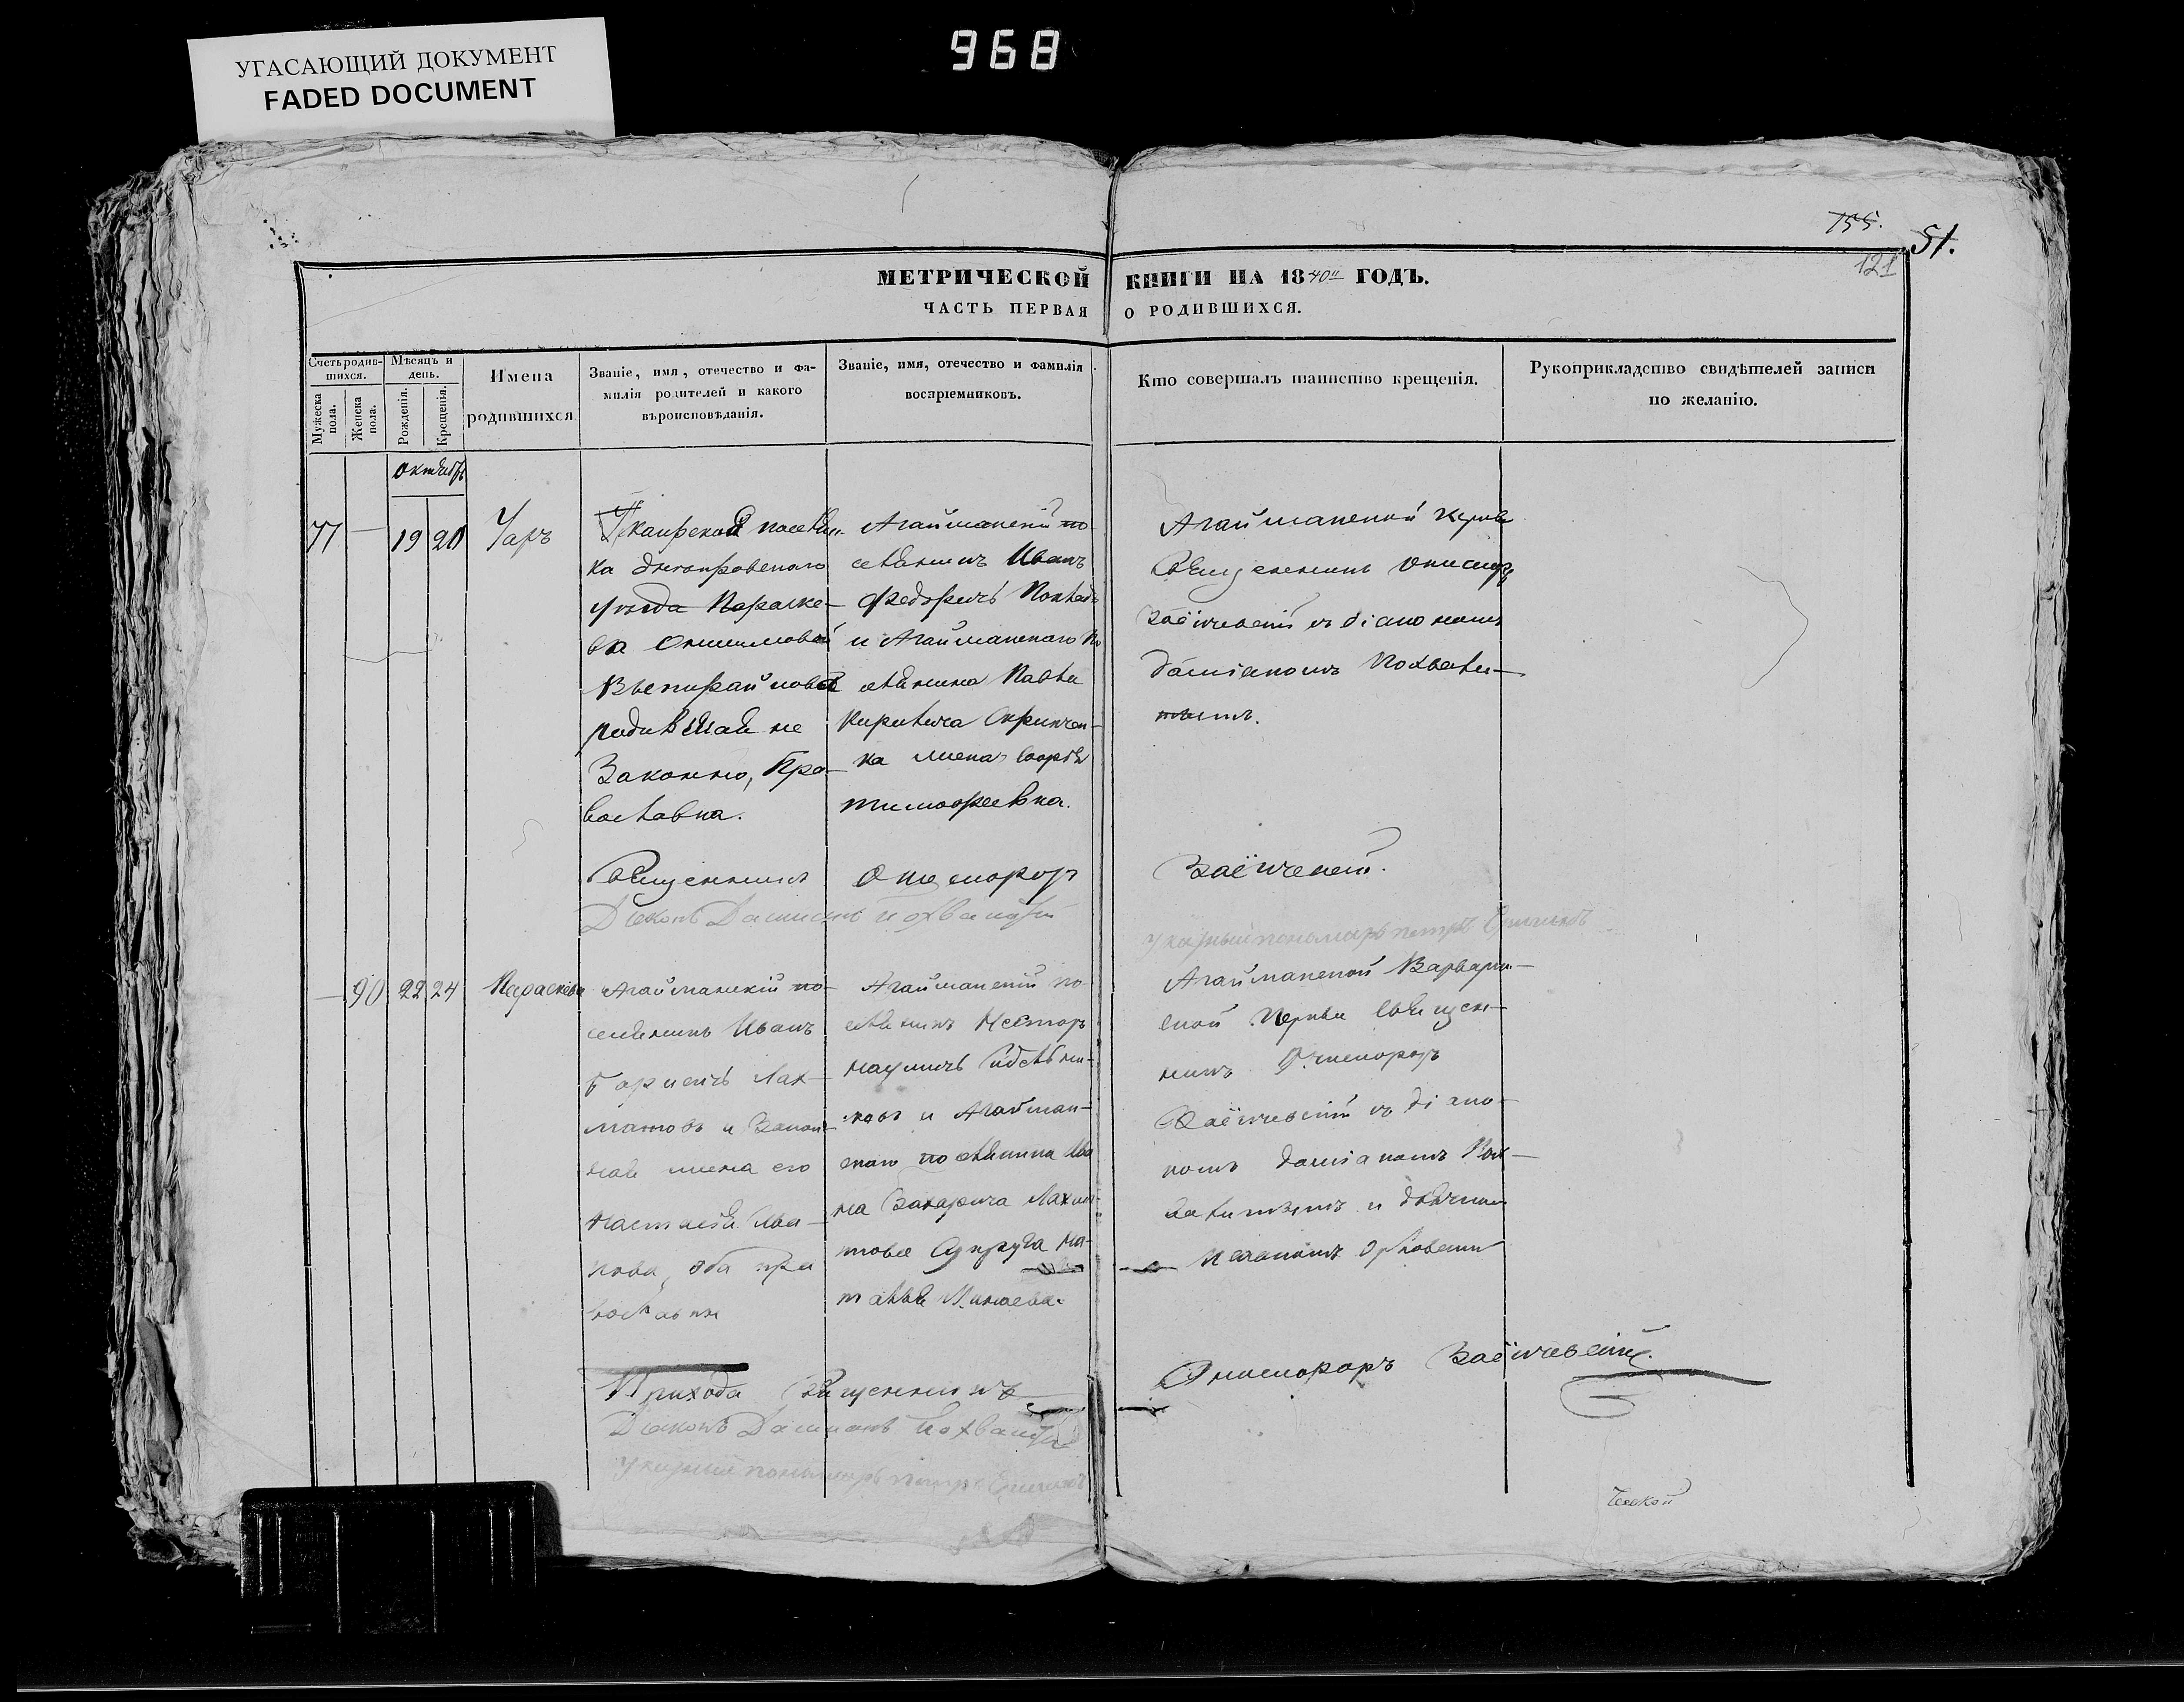 968
УГАСАЮЩИЙ ДОКУМЕНТ
FADED DOCUMENT
155.
51.
121
МЕТРИЧЕСКОЙ КНИГИ НА 1840й ГОДЪ.
ЧАСТЬ ПЕРВАЯ О РОДИВШИХСЯ.
Счетъ родившихся.
Мужеска пола.
Женска пола.
Мѣсяцъ и день.
Рожденія.
Крещенія.
Имена
родившихся.
Званіе, имя, отечество и фа-
милія родителей и какого
вѣроисповѣданія.
Званіе, имя, отечество и фамилія
воспріемниковъ.
Кто совершалъ таинство крещенія.
Рукоприкладство свидѣтелей записи
по желанію.
октябрь
77
—
19
20
Уаръ
поселян-
ка днепровскаго
уезда Параске-
ва Онисимова
родившая не
Законно, Пра-
вославна.
Агайманскій по-
селянинъ Иванъ
Федоричь
и Агайманскаго по
селянина Павла
Кирилича
ка жена Софія
тимофеевна.
Агайманской церкви
Священникъ Онисифоръ
Заёнчевскій съ діакономъ
даміаномъ Похвали-
тымъ.
Священникъ Онисифоръ Заёнчевскій.
Діаконъ Даміанъ Похвалитый
указный пономарь петръ
—
90
22
24
Параскева
Агайманскій по-
селянинъ Иванъ
Лах-
матовъ и Закон-
ная жена его
Настасія Ива-
нова, оба пра
вославны
Агайманскій по
селянинъ Несторъ
наумичь
ковъ и Агайман-
скаго поселянина Ива
на Захарича Лахма-
това Супруга На-
талія
Агайманской Варварин-
ской Церкви Священ-
никъ Онисифоръ
Заёнчевскій съ діако-
номъ даміаномъ Пох-
валитымъ и дьячкомъ
Прихода Священникъ Онисифоръ Заёнчевскій.
Діаконъ Даміанъ Похвалитый
указный пономарь петръ